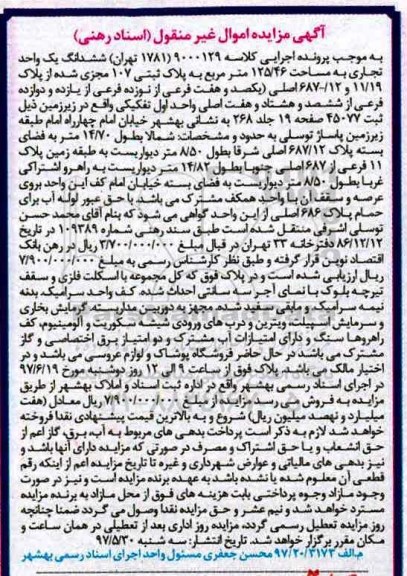 آگهی مزایده اموال غیر منقول (اسناد رهنی)
به موجب پرونده اجرایی کلاسه ۹۰۰۰۱۲۹ (۱۷۸۱ تهران) ششدانگ یک واحد
تجاری به مساحت ۱۲۵/۴۶ متر مربع به پلاک ثبتی ۱۰۷ مجزی شده از پلاک
۱۱/۱۹ و ۶۸۷/۱۲ اصلی (یکصد و هفت فرعی از نوزده فرعی از یازده و دوازده
فرعی از ششصد و هشتاد و هفت اصلی واحد اول تفکیکی واقع در زیرزمین ذیل
ثبت ۴۵۰۷۷ صفحه ۱۹ جلد ۲۶۸ به نشانی بهشهر خیابان امام چهارراه امام طبقه
زیرزمین پاساژ توسلی به حدود و مشخصات: شمالا بطول ۱۴/۷۰ متر به فضای
بسته پلاک ۶۸۷/۱۲ اصلی شرقا بطول ۸/۵۰ متر دیواریست به طبقه زمین پلاک
۱۱ فرعی از ۶۸۷ اصلی جنوبا بطول ۱۴/۸۲ متر دیواریست به راهرو اشتراکی
غربا بطول ۸/۵۰ متر دیواریست به فضای بسته خیابان امام کف این واحد بروی
عرصه و سقف آن با واحد همکف مشترک می باشد. با حق عبور لوله آب برای
حمام پلاک ۶۸۶ اصلی از این واحد گواهی می شود که بنام آقای محمد حسن
توسلی اشرفی منتقل شده است طبق سند رهنی شماره ۱۰۹۳۸۹ در تاریخ
۸۶/۱۲/۱۲ دفترخانه ۳۳ تهران در قبال مبلغ ۳/۷۰۰/۰۰۰/۰۰۰ ریال در رهن بانک
اقتصاد نوین قرار گرفته و طبق نظر کارشناس رسمی به مبلغ ۷/۹۰۰/۰۰۰/۰۰۰
ریال ارزیابی شده است و در پلاک فوق که کل مجموعه با اسکلت فلزی و سقف
تیرچه بلوک با نمای آجر سه سانتی احداث شده کف واحد سرامیک، بدنه
نیمه سرامیک و مابقی سفید شده، مجهز به دوربین مداربسته، گرمایش بخاری
و سرمایش اسپیلت، ویترین و درب های ورودی شیشه سکوریت و آلومینیوم، کف
راهروها سنگ و دارای امتیازات آب مشترک و دو امتیاز برق اختصاصی و گاز
مشترک می باشد در حال حاضر فروشگاه پوشاک و لوازم عروسی می باشد و در
اختیار مالک می باشد. پلاک فوق از ساعت ۹ الی ۱۲ روز دوشنبه مورخ ۹۷/۶/۱۹
در اجرای اسناد رسمی بهشهر واقع در اداره ثبت اسناد و املاک بهشهر از طریق
مزایده به فروش می رسد. مزایده از مبلغ ۷/۹۰۰/۰۰۰/۰۰۰ ریال معادل (هفت
میلیارد و نهصد میلیون ریال) شروع و به بالاترین قیمت پیشنهادی نقدا فروخته
خواهد شد لازم به ذکر است پرداخت بدهی های مربوط به آب، برق، گاز اعم از
حق انشعاب و یا حق اشتراک و مصرف در صورتی که مزایده دارای آنها باشد و
نیز بدهی های مالیاتی و عوارض شهرداری و غیره تا تاریخ مزایده اعم از اینکه رقم
قطعی آن معلوم شده یا نشده باشد به عهده برنده مزایده است و نیز در صورت
وجود مازاد وجوه پرداختی بابت هزینه های فوق از محل مازاد به برنده مزایده
مسترد خواهد شد و نیم عشر و حق مزایده نقدا وصول می گردد ضمنا چنانچه
روز مزایده تعطیل رسمی گردد، مزایده روز اداری بعد از تعطیلی در همان ساعت و
مکان مقرر برگزار خواهد شد. تاریخ انتشار: سه شنبه ۹۷/۵/۳۰
م.الف ۹۷/۲۰/۳۱۷۳ محسن جعفری مسئول واحد اجرای اسناد رسمی بهشهر